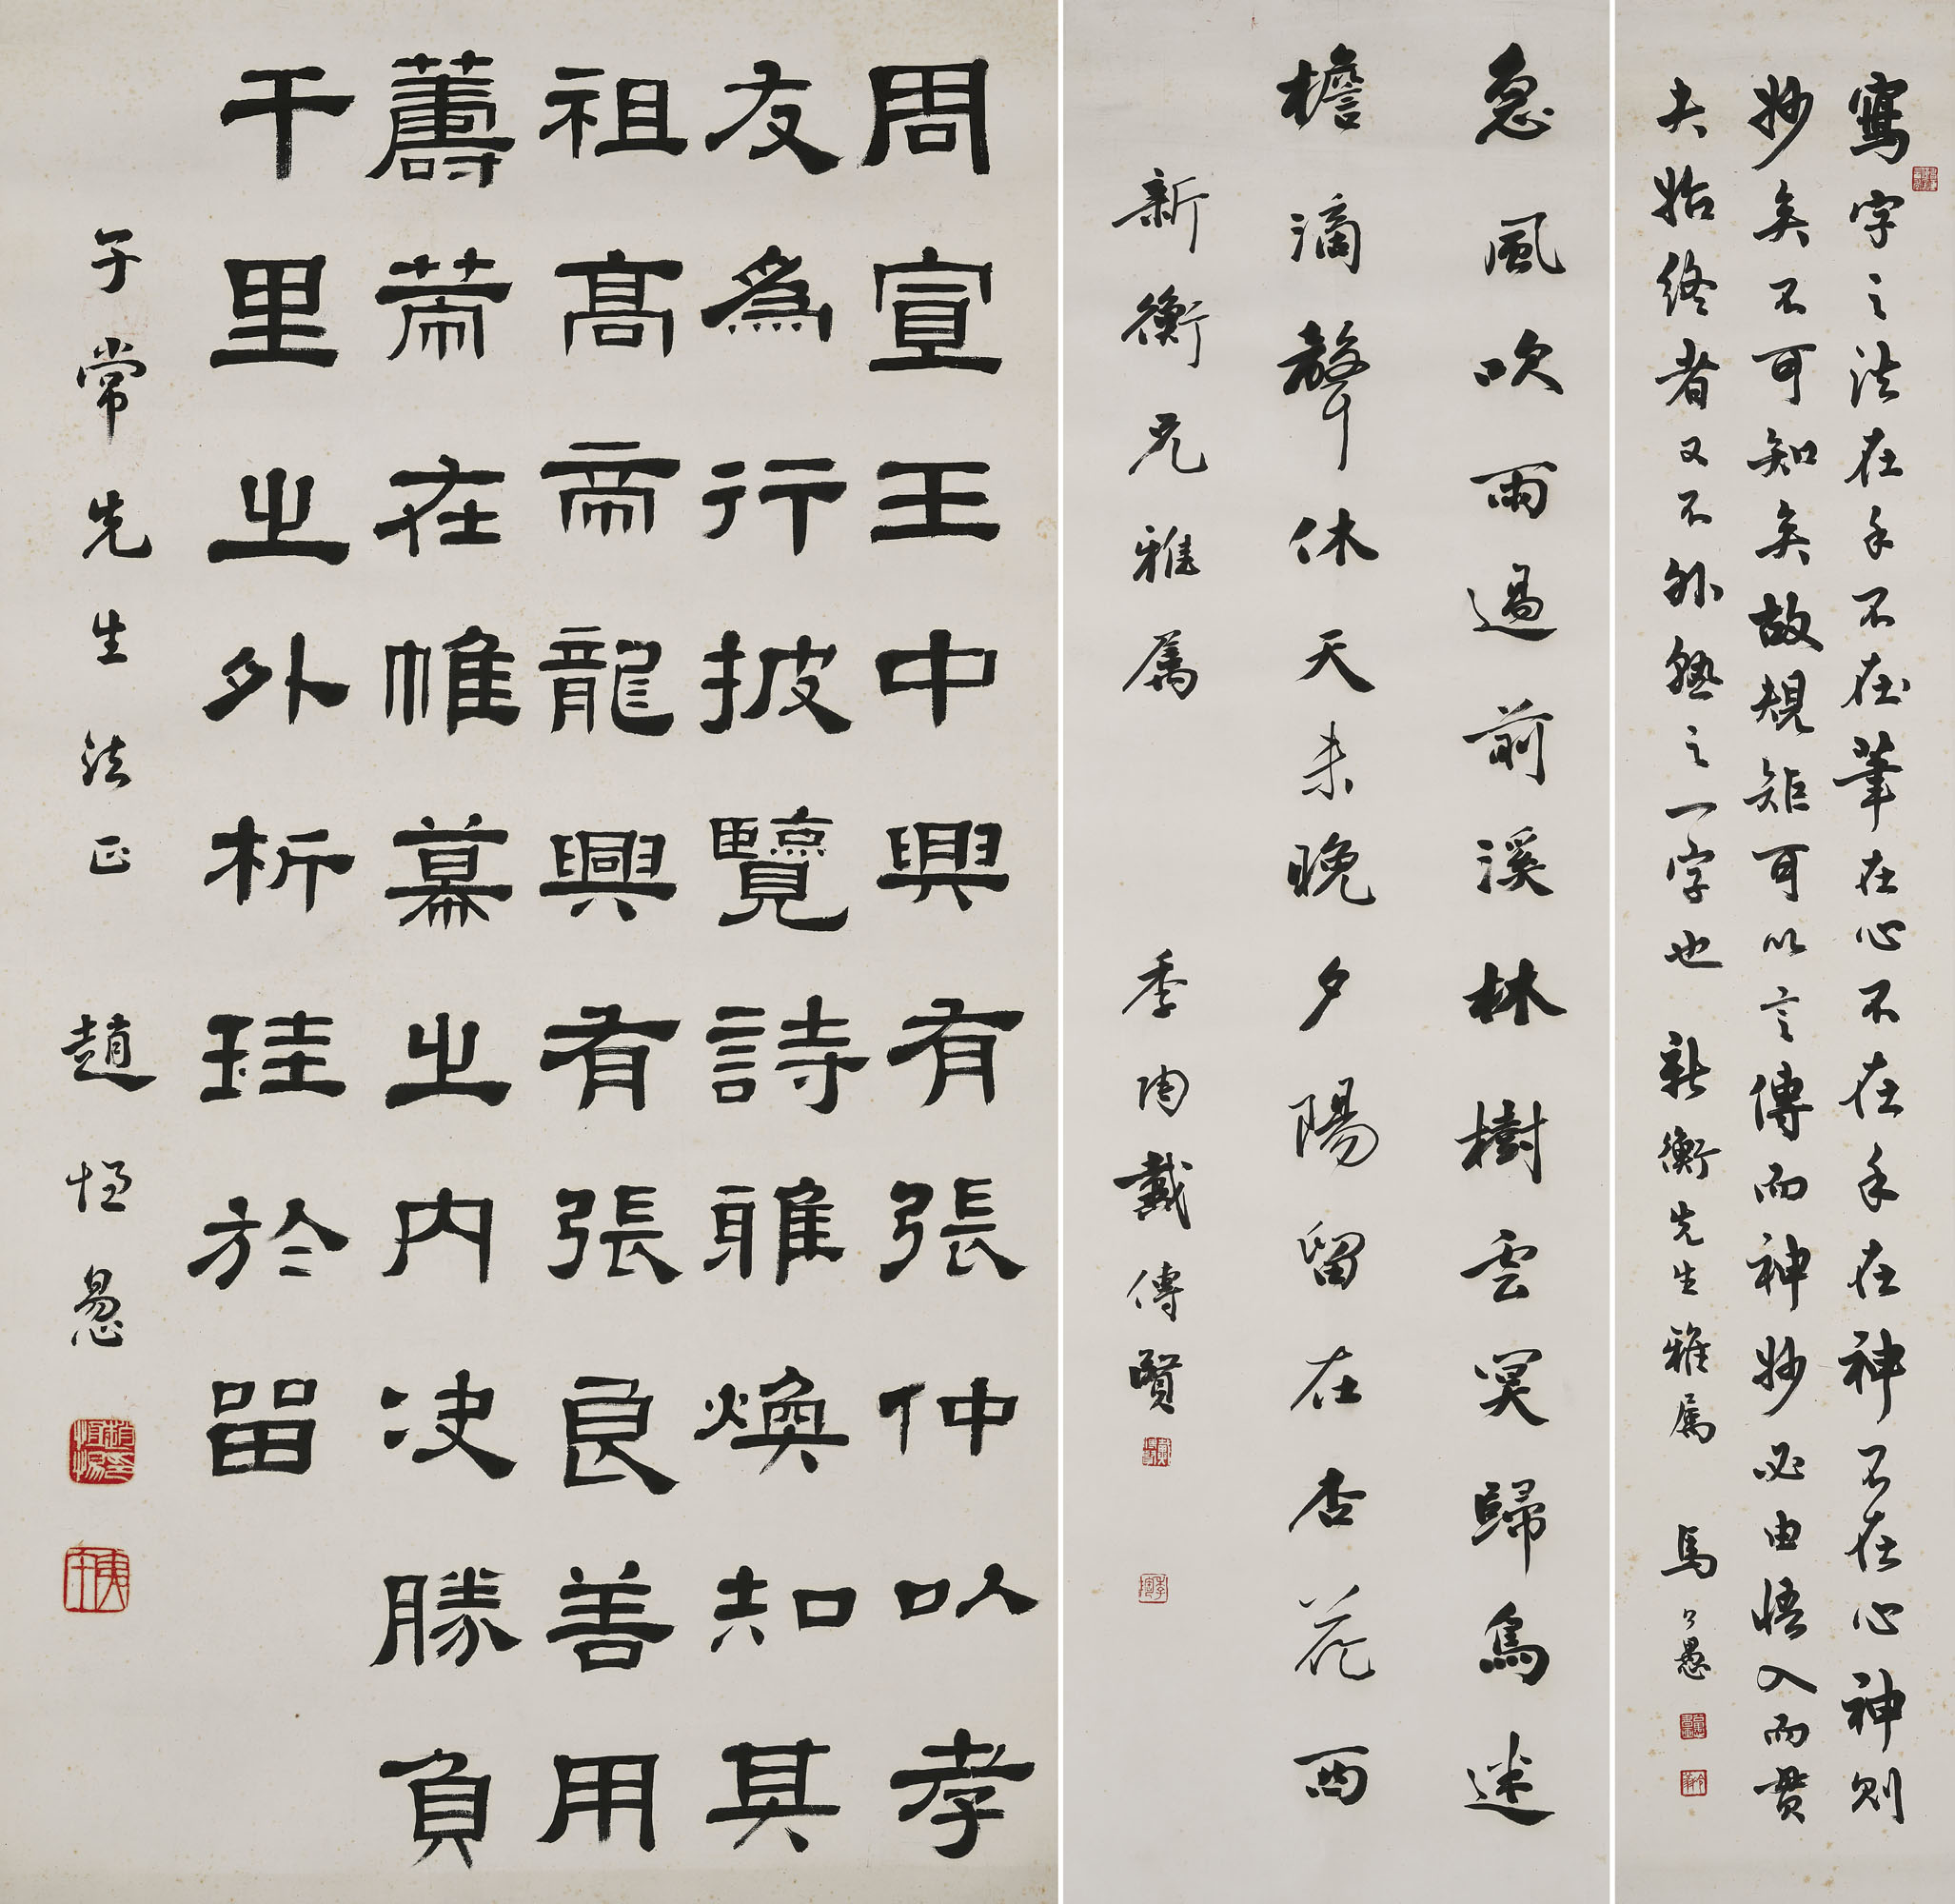 寫字之法在手不在筆在心不在手在神不在心神則
妙矣不可知矣故規矩可以言傳而神妙必由悟入而貫
夫始終者又不外熟之一字也 新衡先生雅屬 馬公愚
急風吹雨過前溪林樹雲冥歸鳥迷
檐滴聲休天未晚夕陽留在杏花西
新衡兄雅屬 季陶戴傳賢
周宣王中興有張仲以孝
友為行披覽詩雅煥知其
祖高帝龍興有張良善用
籌策在帷幕之內决勝負
千里之外析珪於留
子常先生法正 趙恒惕